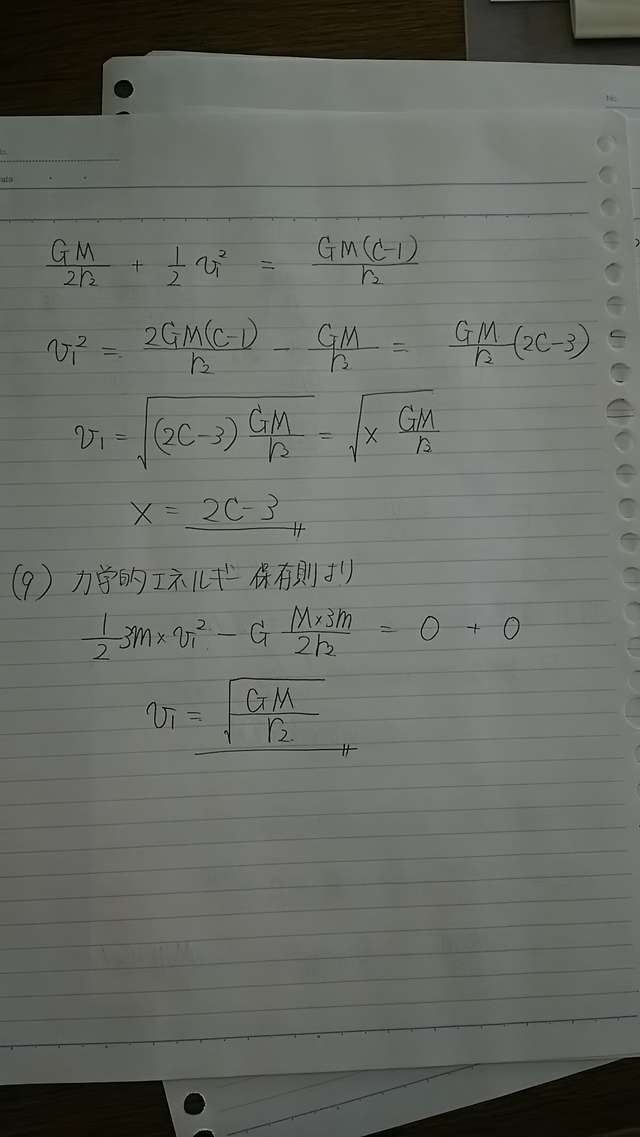 No.
GM/2r₂ + 1/2 v₁² = GM(C-1)/r₂
v₁² = 2GM(C-1)/r₂ - GM/r₂ = GM/r₂ (2C-3)
v₁ = √((2C-3) GM/r₂) = √(x GM/r₂)
x = 2C-3
(9) 力学的エネルギー保存則より
1/2 3m×v₁² - G M×3m/2r₂ = 0 + 0
v₁ = √(GM/r₂)